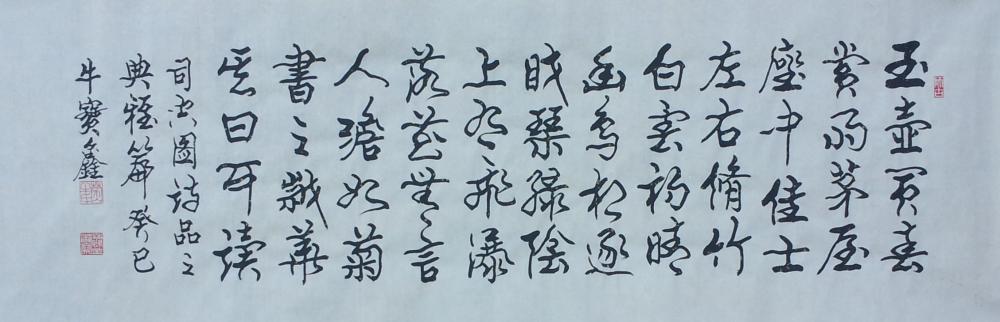 玉壺買春
賞雨茅屋
座中佳士
左右脩竹
白雲初晴
幽鳥相逐
眠琴綠陰
上有飛瀑
落花無言
人澹如菊
書之歲華
其曰可讀
司空圖詩品之
典雅篇 癸巳
牛寶鑫